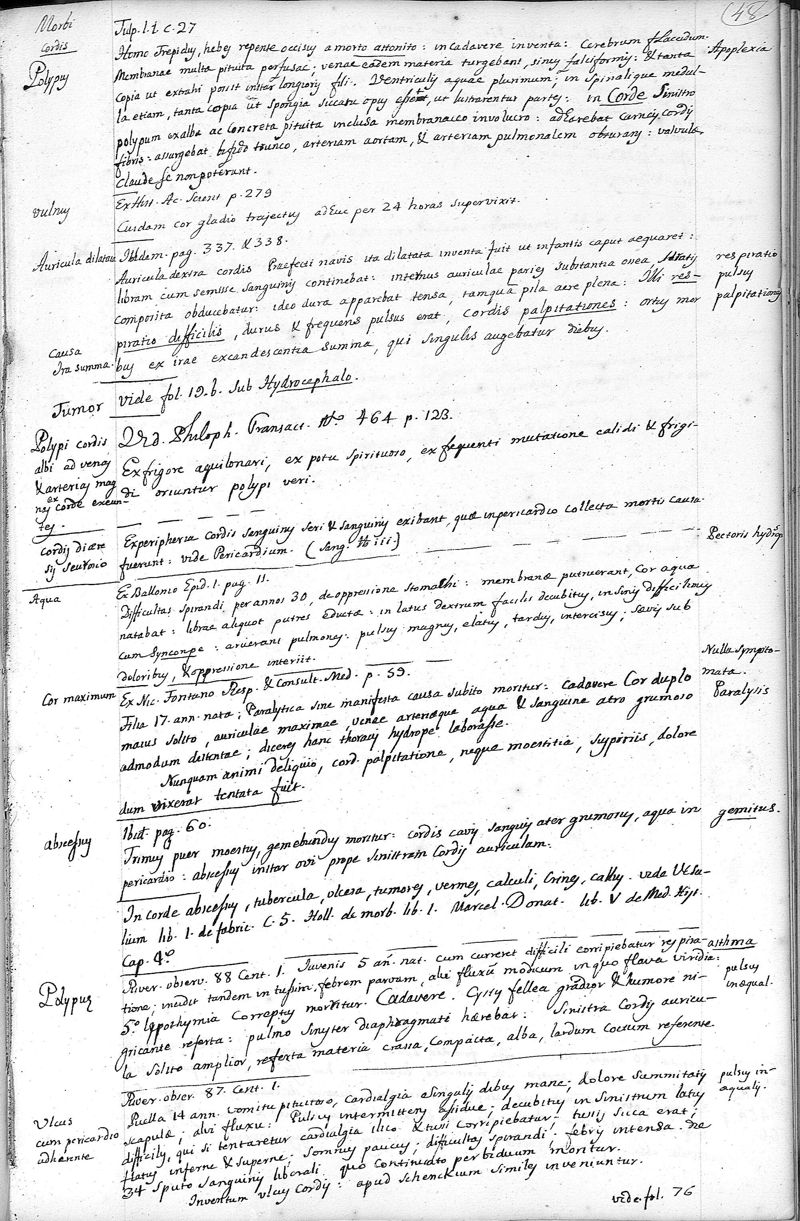 (48)
Morbi
cordis
Tulp. l. 1. c. 27
Polypus
Homo trepidus, hebes repente occisus a morbo attonito: in cadavere inventa: Cerebrum flaccidum.
Apoplexia
Membranae multa pituita perfusae; venae eadem materia turgebant, sinus falciformis: & tanta
copia ut extrahi possit instar longioris fili. Ventriculis aquae plurimum; in Spinalique medul-
la etiam, tanta copia ut spongia siccatu opus esset, ut lustrarentur partes: in Corde Sinistro
polypum ex alba ac concreta pituita inclusa membranaceo involucro: adhaerebat carneis cordis
fibris: assurgebat bifido trunco, arteriam aortam, & arteriam pulmonalem obturans: valvulae
claudi se non poterant.
vulnus
Ex Hist. Ac. Scient p. 279
Cuidam cor gladio trajectus adhuc per 24 horas supervixit.
Auricula dilatata
Ibidem. pag. 337. & 338.
Auricula dextra cordis Praefecti navis ita dilatata inventa fuit ut infantis caput aequaret:
libram cum semisse sanguinis continebat: internus auriculae paries substantia ossea
respiratio
composita obducebatur: ideo dura apparebat tensa, tamquā pila aere plena: Illi res-
pulsus
piratio difficilis, durus & frequens pulsus erat, cordis palpitationes: ortus mor
palpitationes
Causa
Ira summa
bus ex irae excandescentia summa, qui singulis augebatur diebus.
Tumor
vide fol. 19. b. sub Hydrocephalo.
Polypi cordis
albi ad venas
& arterias mag
nas ex corde exeun-
tes.
Vid. Philoph. Transact. No. 464 p. 123.
Ex frigore aquilonari, ex potu spirituoso, ex frequenti mutatione calidi & frigi-
di oriuntur polypi veri.
Cordis diaere
sis seu
Ex peripheria Cordis sanguinis seri & sanguinis exibant, quae in pericardio collecta mortis causa
fuerunt: vide Pericardium. (Sang.
Pectoris hydrops
Aqua
Ex Ballonio Epid. 1. pag. 11.
Difficultas spirandi, per annos 30, de oppressione stomachi: membranae putruerant, Cor aqua
natabat: librae aliquot putres eductae: in latus dextrum facilis decubitus, in sinis. difficilimus
cum Syncope: aruerant pulmones: pulsus magnus, elatus, tardus, intercisus; saevis sub
doloribus, & oppressione interiit.
Cor maximum
Ex Nic. Fontano Resp. & Consult. Med. p. 59.
Nulla sympto-
mata.
Filia 17. ann. nata; Paralytica sine manifesta causa subito moritur: cadavere Cor duplo
Paralysis
maius solito, auriculae maximae, venae arteriaeque aqua & sanguine atro grumoso
admodum distentae; diceres hanc thoracis hydrope laborasse.
Nunquam animi deliquio, cord. palpitatione, neque moestitia, suspiriis, dolore
dum vixerat tentata fuit.
abscessus
Ibid. pag. 60.
Trimus puer moestus, gemebundus moritur: cordis cavis sanguis ater grumosus, aqua in
gemitus.
pericardio: abscessus instar ovi prope sinistram Cordis auriculam.
In corde abscessus, tubercula, ulcera, tumores, vermes, calculi, crines, callus. vide Vesa-
lium lib. 1. de fabric. C. 5. Holl. de morb. lib. 1. Marcel. Donat. lib. V de Med. Hist.
Cap. 4.o
Polypus
River. observ. 88 Cent. 1. Iuvenis 5 añ. nat. cum curreret difficili corripiebatur respira-
asthma
tione; incidit tandem in tussim, febrem parvam, alvi fluxū modicum in quo flava viridia:
pulsus
inaequal.
5.o lypothymia correptus moritur. Cadavere. Cystis fellea grandior & humore ni-
gricante referta: pulmo sinister diaphragmate haerebat: Sinistra Cordis auricu-
la solito amplior, referta materia crassa, compacta, alba, lardum coctum referente.
Ulcus
cum pericardio
adhaerente
River. obser. 87. Cent. 1.
Puella 14 ann. vomitu pituitoso, cardialgia a singulis dibus mane; dolore summitatis
pulsus in-
aequalis.
scapulae; alvi fluxu: Pulsus intermittens assidue; decubitus in sinistrum latus
difficilis, qui si tentaretur cardialgia illico & tussi corripiebatur: tussis sicca erat;
flatus inferne & superne: somnus paucus; difficultas spirandi: febris intensa. die
34 sputo sanguinis liberali quo continuato per biduum moritur.
Inventum ulcus Cordis: apud Schenckium similes inveniuntur.
vide. fol. 76